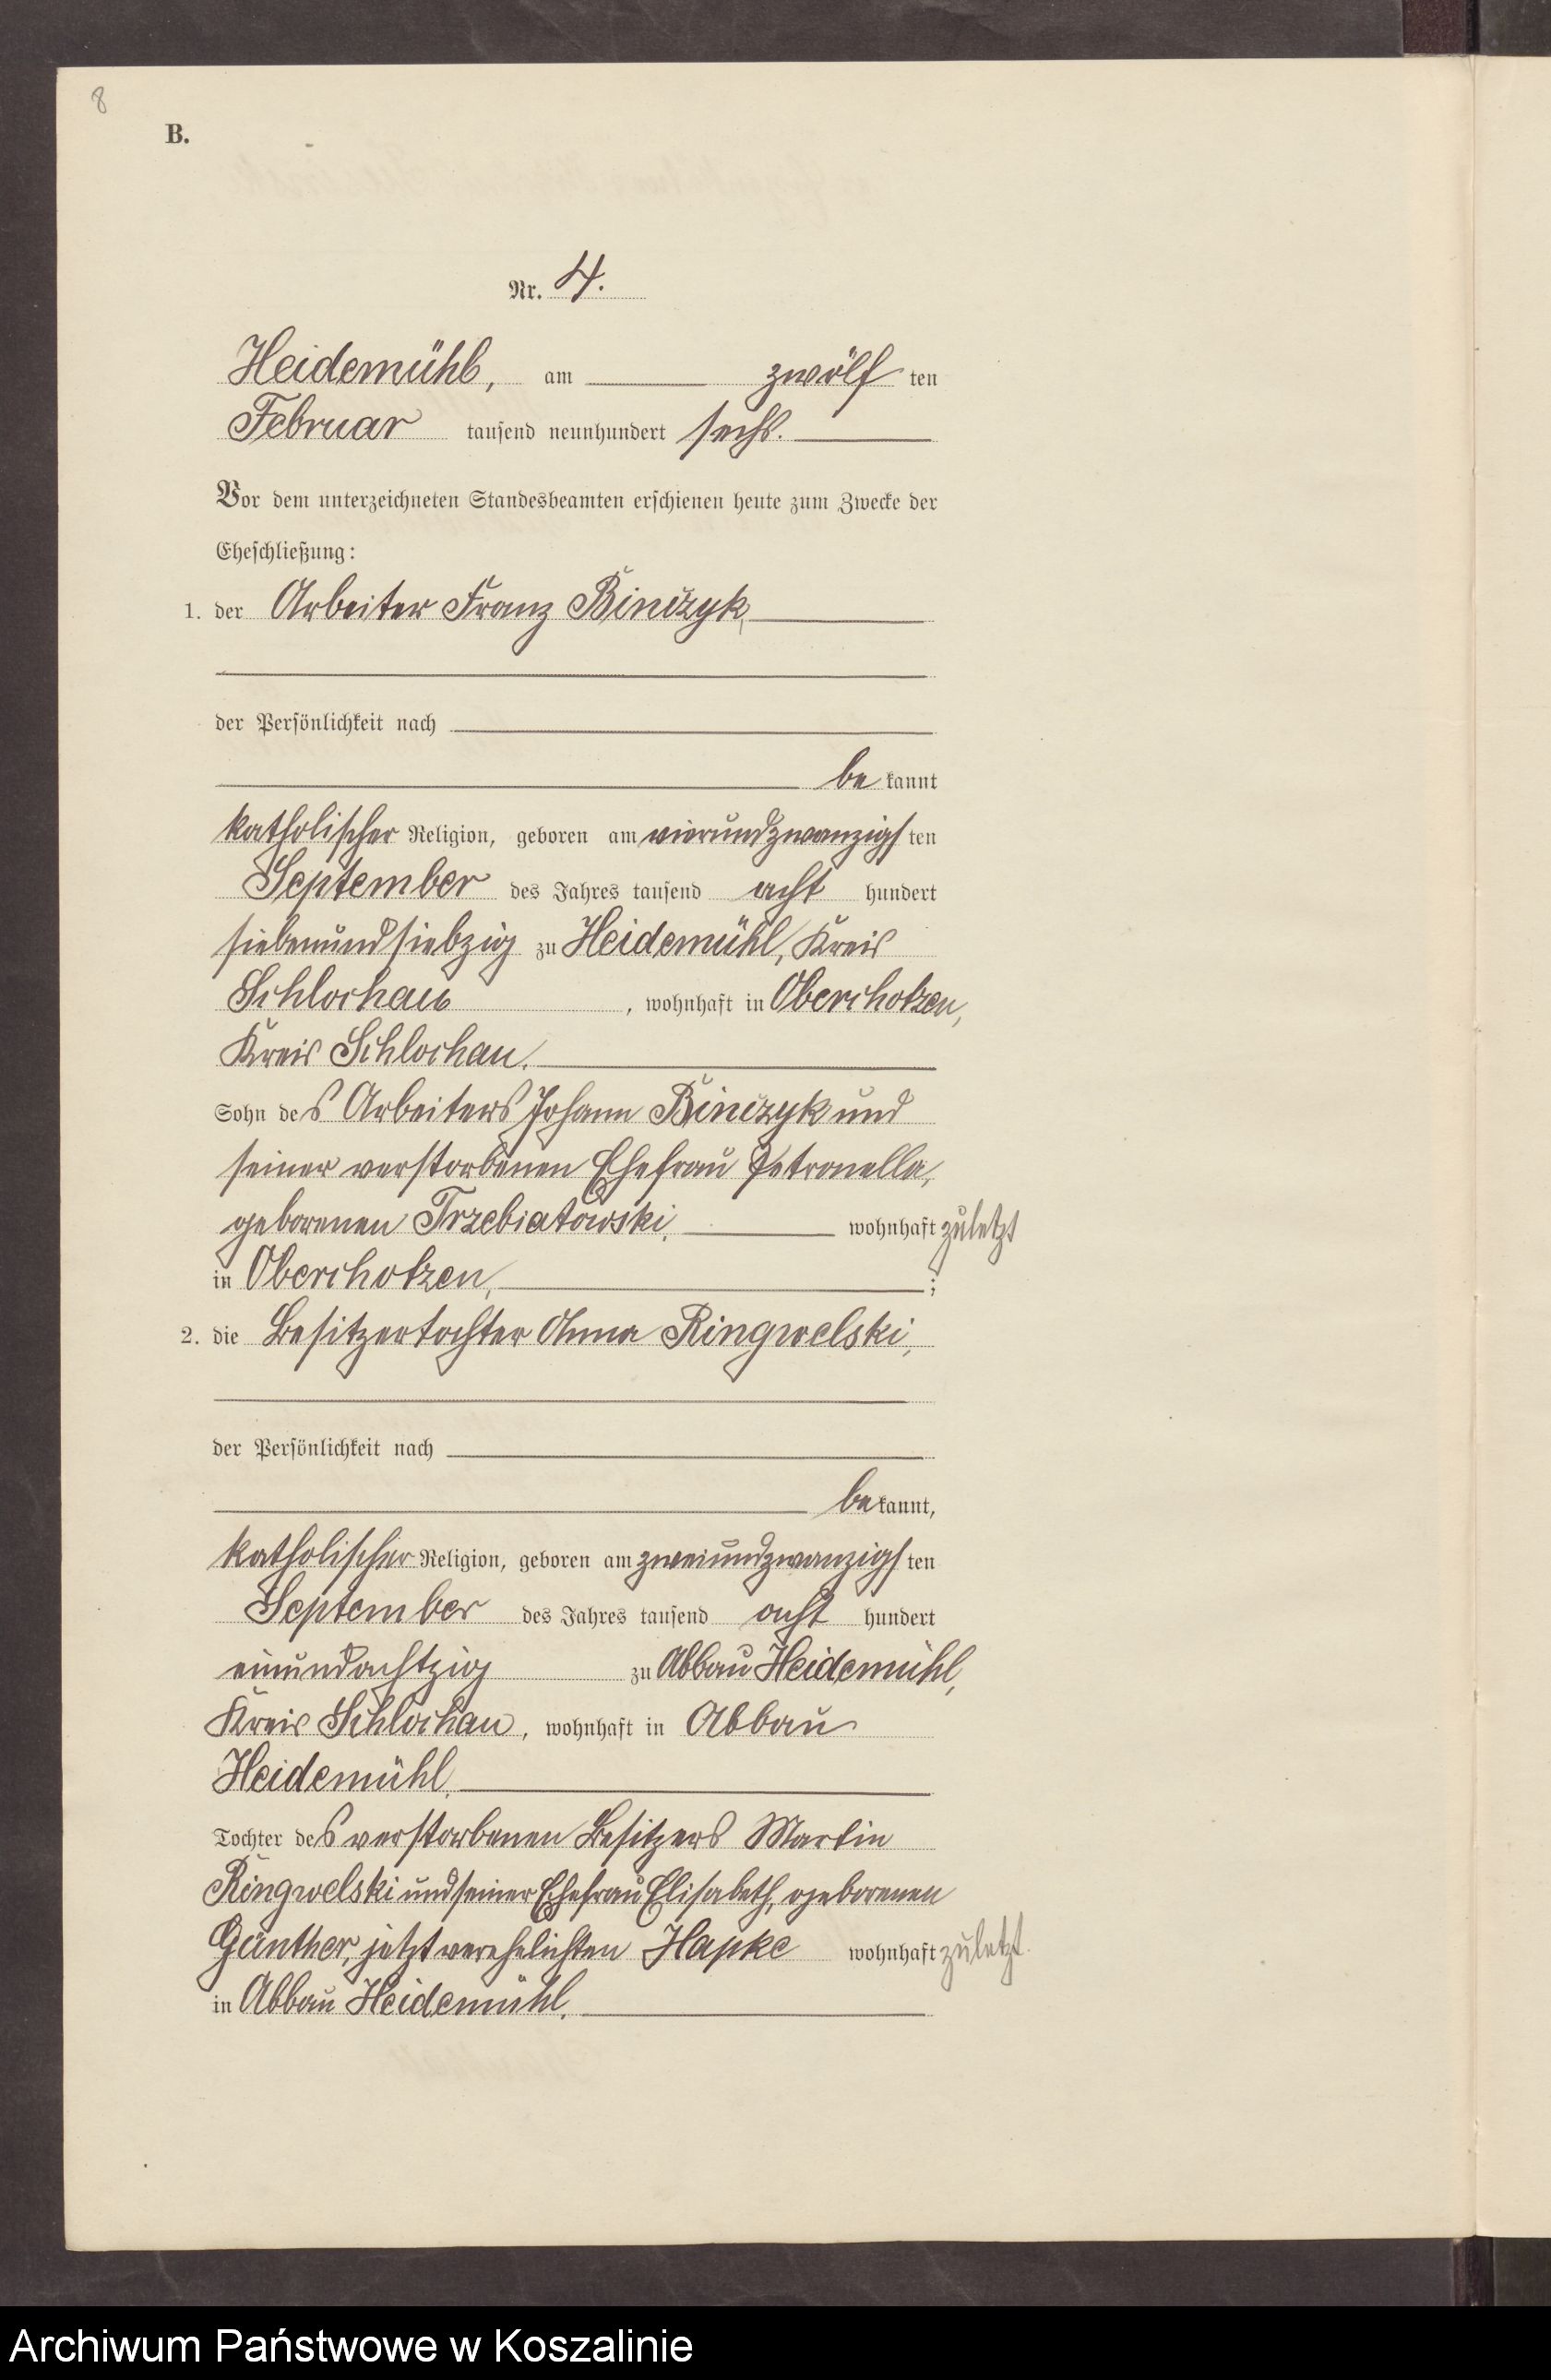 8
B.
Nr. 4.
Heidemühl, am zwölf ten
Februar tausend neunhundert sechs.
Vor dem unterzeichneten Standesbeamten erschienen heute zum Zwecke der
Eheschließung:
1. der Arbeiter Franz Binczyk,
der Persönlichkeit nach
be kannt
katholischer Religion, geboren am vierundzwanzigs ten
September des Jahres tausend acht hundert
siebenundsiebzig zu Heidemühl, Kreis
Schlochau, wohnhaft in Oberchotzen,
Kreis Schlochau.
Sohn des Arbeiters Johann Binczyk und
seiner verstorbenen Ehefrau Petronella,
geborenen Trzebiatowski, wohnhaft zuletzt
in Oberchotzen, ;
2. die Besitzertochter Anna Ringwelski,
der Persönlichkeit nach
be kannt,
katholischer Religion, geboren am zweiundzwanzigs ten
September des Jahres tausend acht hundert
einundachtzig zu Abbau Heidemühl,
Kreis Schlochau, wohnhaft in Abbau
Heidemühl,
Tochter des verstorbenen Besitzers Martin
Ringwelski und seiner Ehefrau Elisabeth, geborenen
Günther, jetzt verehelichten Hapke wohnhaft zuletzt
in Abbau Heidemühl.
Archiwum Państwowe w Koszalinie